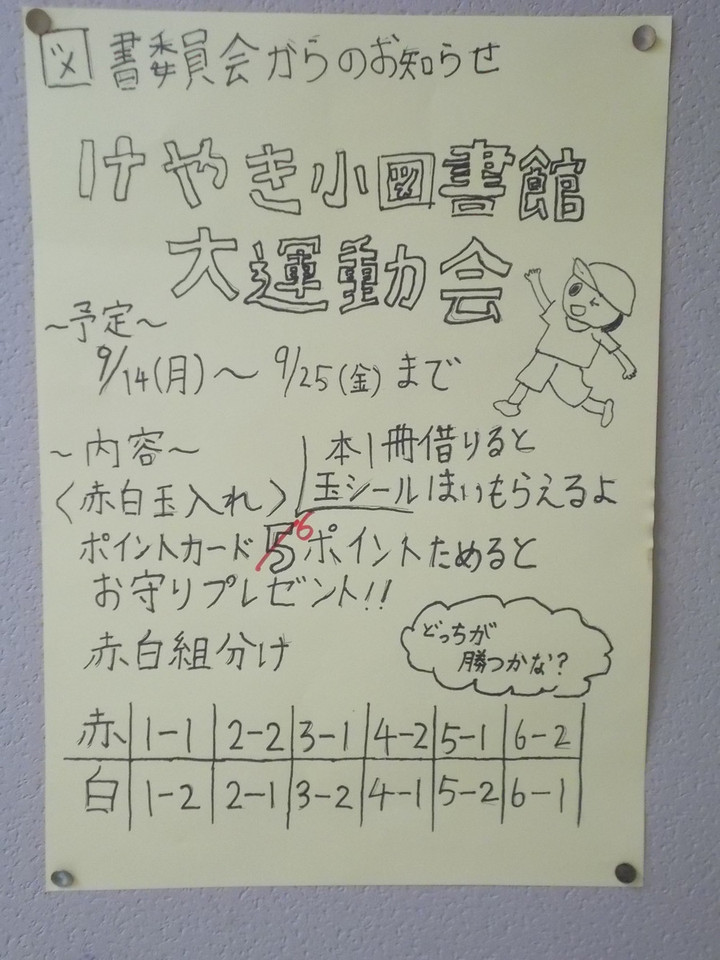 図書委員会からのお知らせ
けやき小図書館
大運動会
～予定～
9/14(月)～9/25(金)まで
～内容～
〈赤白玉入れ〉
本1冊借りると
玉シール1まいもらえるよ
ポイントカード5 6ポイントためると
お守りプレゼント!!
赤白組分け
どっちが
勝つかな?
赤 1-1 2-2 3-1 4-2 5-1 6-2
白 1-2 2-1 3-2 4-1 5-2 6-1